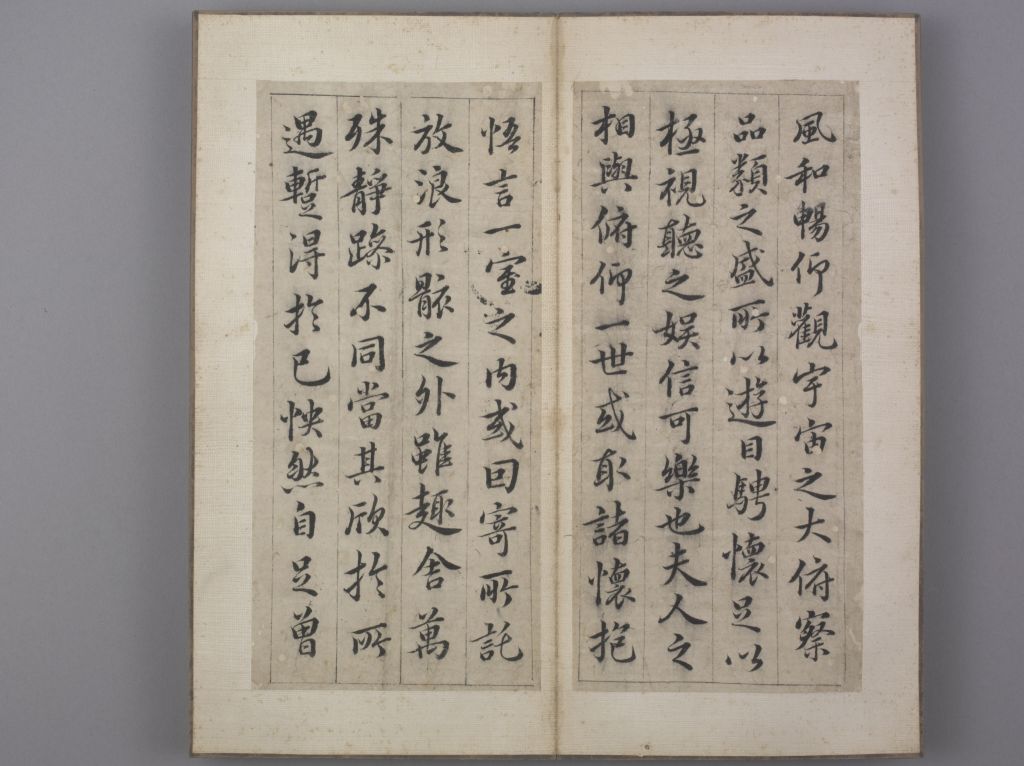 風和暢仰觀宇宙之大俯察
品類之盛所以遊目騁懷足以
極視聽之娛信可樂也夫人之
相與俯仰一世或取諸懷抱
悟言一室之內或因寄所託
放浪形骸之外雖趣舍萬
殊靜躁不同當其欣於所
遇蹔得於己怏然自足曾